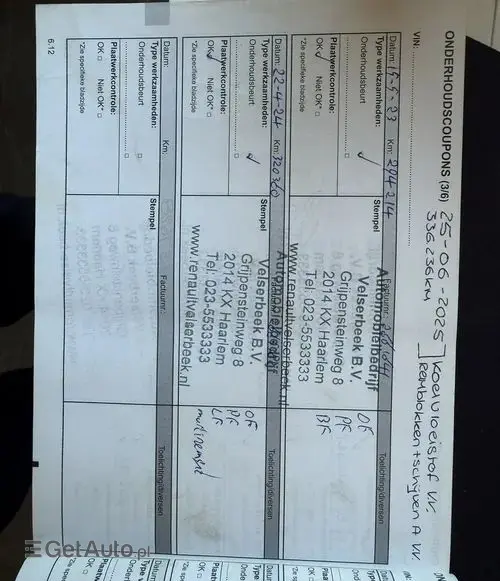 ONDERHOUDSCOUPONS (3/6) 25-06-2025 ] Koelvloeistof VV.
336236km ] Remblokken + schijven A VV
VIN:
Datum: 15-5-23 Km: 294214 Factuurnr.: Toelichting/diversen
Type werkzaamheden: Stempel
Onderhoudsbeurt ✓
Plaatwerkcontrole:
OK ✓ Niet OK* □
*Zie specifieke bladzijde
Automobielbedrijf
Velserbeek B.V.
Grijpensteinweg 8
2014 KX Haarlem
Tel: 023-5533333
www.renaultvelserbeek.nl
OF
PF
BF
Datum: 22-4-24 Km: 320360 Toelichting/diversen
Type werkzaamheden: Stempel
Onderhoudsbeurt ✓
Plaatwerkcontrole:
OK ✓ Niet OK* □
*Zie specifieke bladzijde
Automobielbedrijf
Velserbeek B.V.
Grijpensteinweg 8
2014 KX Haarlem
Tel: 023-5533333
www.renaultvelserbeek.nl
OF
PF
LF
multiriemset
Datum: Km: Factuurnr.: Toelichting/diversen
Type werkzaamheden: Stempel
Onderhoudsbeurt □
□
Plaatwerkcontrole:
OK □ Niet OK* □
*Zie specifieke bladzijde
6.12
GetAuto.pl